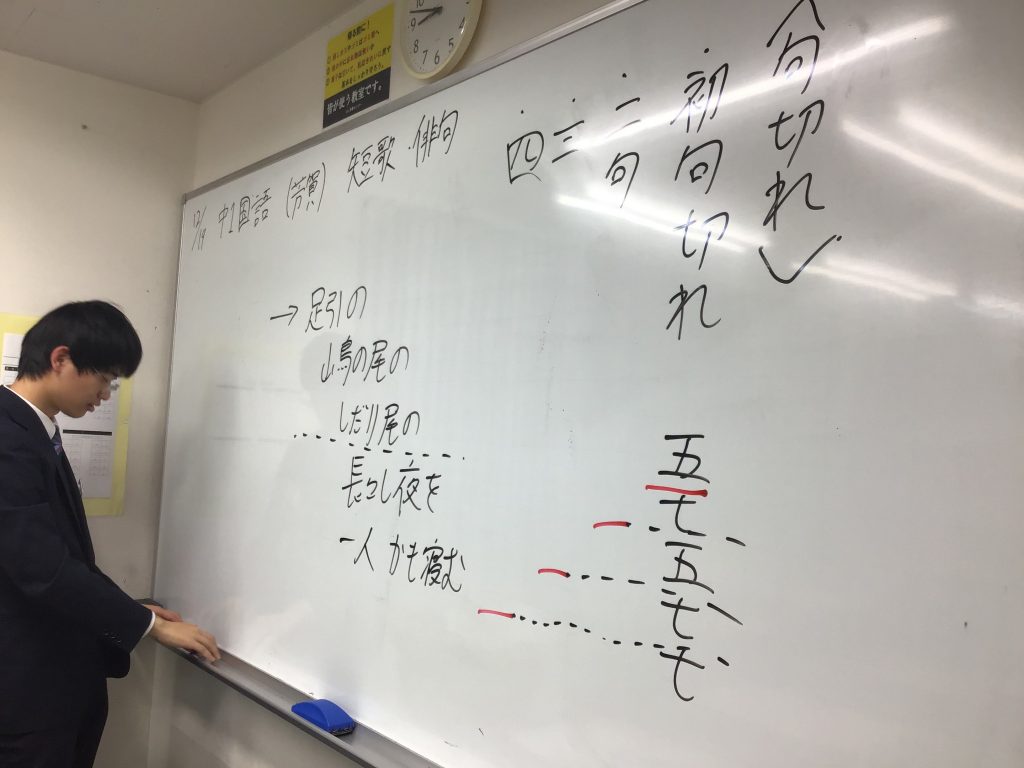 帰る前に!
皆が使う教室です。
10
9
8
7
6
5
12/19 中1国語 (芳賀) 短歌・俳句
〈句切れ〉
・初句切れ
・二句
・三
・四
→足引の
山鳥の尾の
しだり尾の
長々し夜を
一人かも寝む
五
七
五
七
七